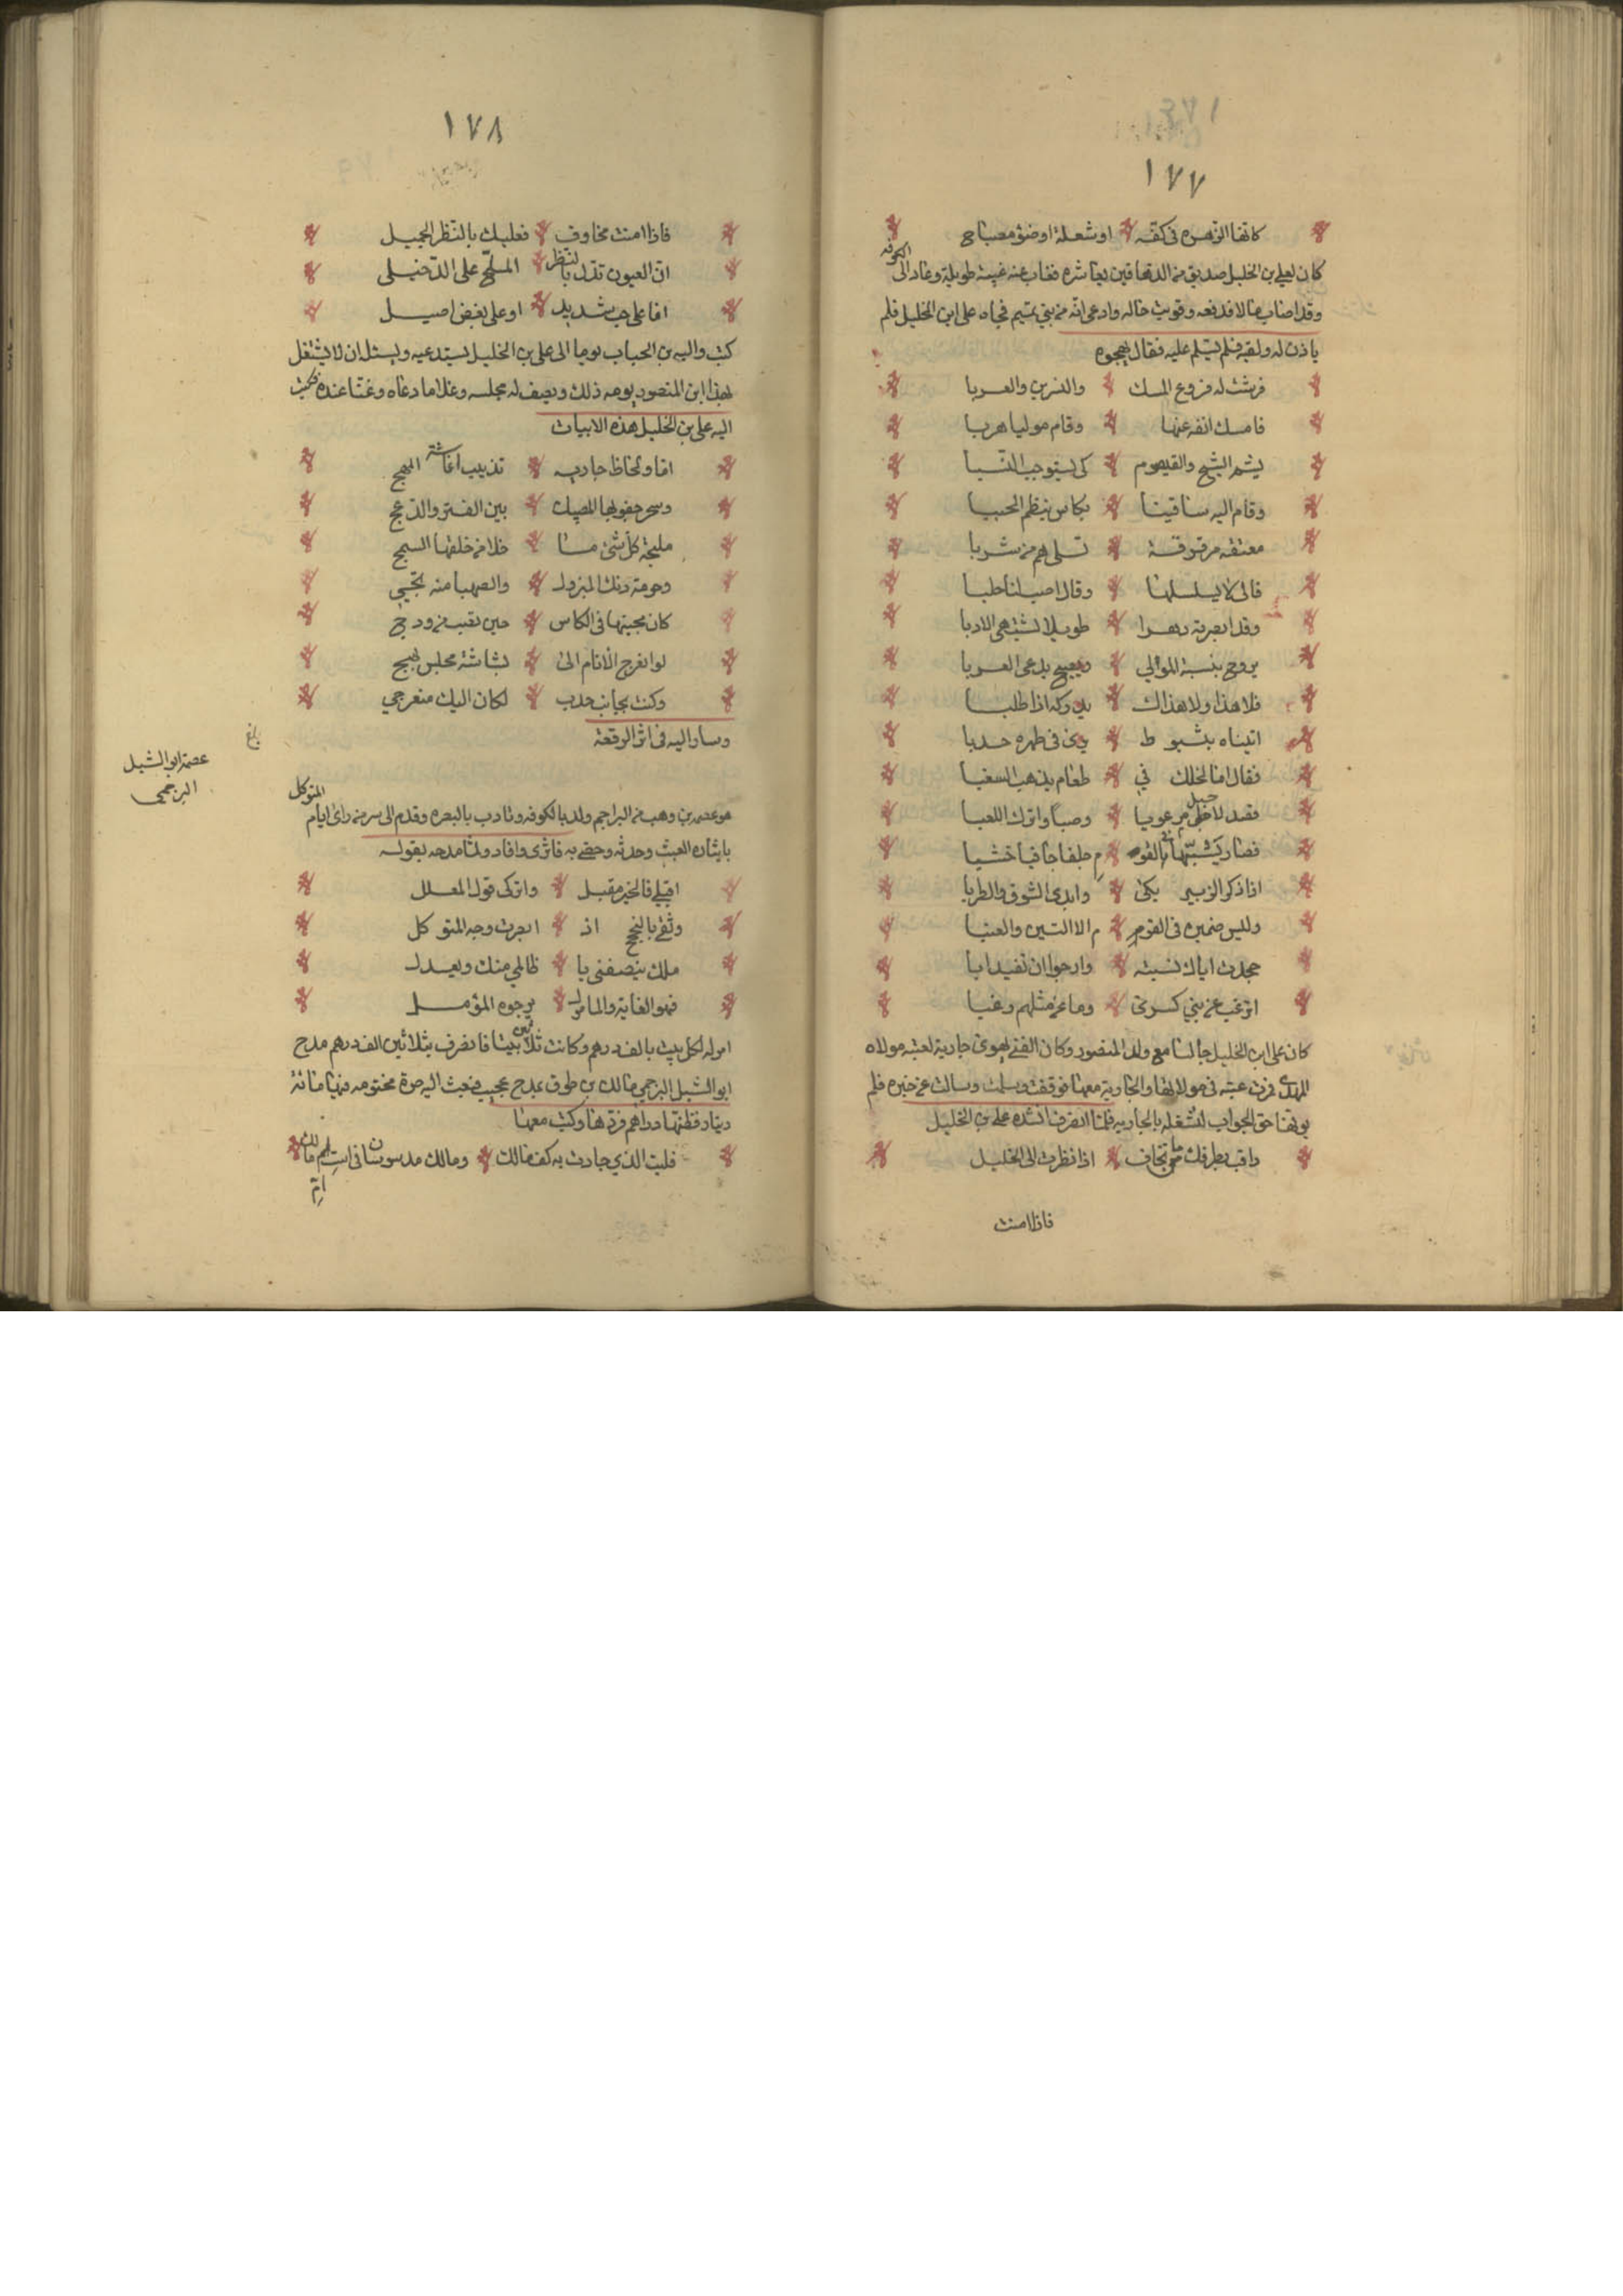 ١٧٧
كانها الزهرة في كفه اوشعلة اوضؤ مصباح
كان لعلي بن الخليل صديق من الدهاقين يعاشره فغاب عنه غيبة طويلة وعاد الى الكوفه
وقد اصاب مالا ورفعه وقويت حاله وادعى انه من بني تميم فجاه على ابن الخليل فلم
ياذن له ولقيه فلم يسلم عليه فقال يهجوه
فرشت له فروع المسك والنسرين والعربا
فامسك انفه عنها وقام موليا هربا
يشم الشيح والقيصوم كي يستوجب النسبا
وقام اليه ساقينا بكاس ينظم الحببا
معتقه مروقة تسلى هم من شربا
فالى لا يسلسلها وقال اصبب لنا حلبا
وقد ابصرته دهرا طويلا يشتهي الادبا
يروح بنسبة الموالي ويصبح يدعى العربا
فلا هذا ولا هذاك يدركه اذا طلبا
اتيناه بشبوط يرى في ظهره حدبا
فقال اما لخلك في طعام يذهب السغبا
فصد لاخيك يربوعا وضبا واترك اللعبا
فصار تشبها بالقوم جلفا جافيا خشبا
اذا ذكر البرير بكى وابدى الشوق والطربا
وليس ضميره في القوم الا التين والعنبا
جحدت اباك نسبته وارجو ان تفيد ابا
اترغب عن بني كسرى وما عن مثلهم رغبا
كان على ابن الخليل جالسا مع ولد المنصور وكان الفتى يهوى جارية لعتبه مولاه
المهدي فمرت عتبه في مولاتها والجارية معها فوقفت وسلمت وسالت عن خبره فلم
يوفها حق الجواب لشغله بالجارية فلما انصرفت انشده على بن الخليل
راقب بطرفك من تخاف اذا نظرت الى الخليل
فاذا امنت
١٧٨
فاذا امنت مخاوف فعليك بالنظر الجميل
ان العيون تدل بالنظر الملح على الدخيل
اما على حب شديد او على بغض اصيل
كتب والبه بن الحباب يوما الى علي بن الخليل يستدعيه ويسئل ان لا يشتغل
بهذا ابن المنصور يومه ذلك ويصف له مجلسه وغلاما دعاه وغنا عنده فكتب
اليه على بن الخليل هذه الابيات
اما ولحاظ جارية تذيب حشاشة المهج
وسحر جفونها المضنيك بين الفتر والدعج
مليحة كل شئ ما خلا من خلقها السمج
وحرمة دنك المبزول والصهبا منه تجيى
كان مجيئها في الكاس حين تصب من ودج
لو انعرج الانام الى بشاشة مجلس بهج
وكنت بجانب جدب لكان اليك منعرجي
وسار اليه في اثر الرقعة
بلغ
عصمة ابو الشبل
البرجمي
هو عصم بن وهب من البراجم ولد بالكوفه وتادب بالبصره وقدم الى سر من راى ايام المتوكل
بايثاره العبث وحدثه وحضى به فاثرى وافاد ولما مدحه بقوله
اقبلي فالخير مقبل واتركى قول المعلل
وثقي بالنجح اذ ابصرت وجه المتوكل
ملك ينصفني يا ظالمي منك ويعدل
فهو الغاية والمامول يرجوه المؤمل
امر له لكل بيت بالف درهم وكانت ثلاثين بيتا فانصرف بثلاثين الف درهم مدح
ابو الشبل البرجمي مالك بن طوق بمدح عجيب فبعث اليه صرة مختومه فيها مائة
دينار فظنها دراهم فردها وكتب معها
فليت الذي جادت به كف مالك ومالك مدسوسان في است ام مالك